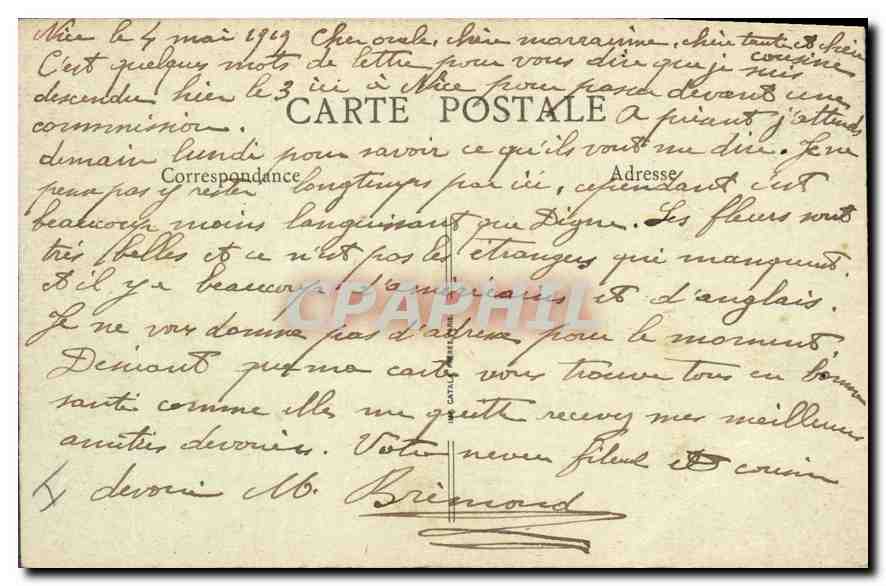 Nice le 4 mai 1919 Cher oncle, chère marraine, chère tante et chère
cousine
C'est quelques mots de lettre pour vous dire que je suis
descendu hier le 3 ici à Nice pour passer devant une
CARTE POSTALE
commission. A présent j'attends
demain lundi pour savoir ce qu'ils vont me dire. Je ne
Correspondance Adresse
peux pas y rester longtemps par ici, cependant c'est
beaucoup moins languissant que Digne. Les fleurs sont
très belles et ce n'est pas les étrangers qui manquent.
et il y a beaucoup d'américains et d'anglais.
CPAPHIL
Je ne vous donne pas d'adresse pour le moment
Désirant que ma carte vous trouve tous en bonne
santé comme elle me quitte recevez mes meilleures
amitiés dévouées. Votre neveu filleul et cousin
dévoué M. Brémond
IMP. CATALA FRÈRES, PARIS